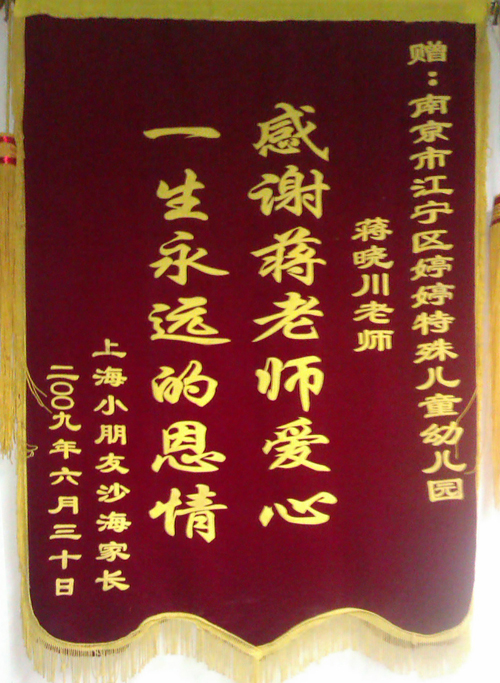 赠：南京市江宁区婷婷特殊儿童幼儿园
蒋晓川老师
感谢蒋老师爱心
一生永远的恩情
上海小朋友沙海家长
二〇〇九年六月三十日